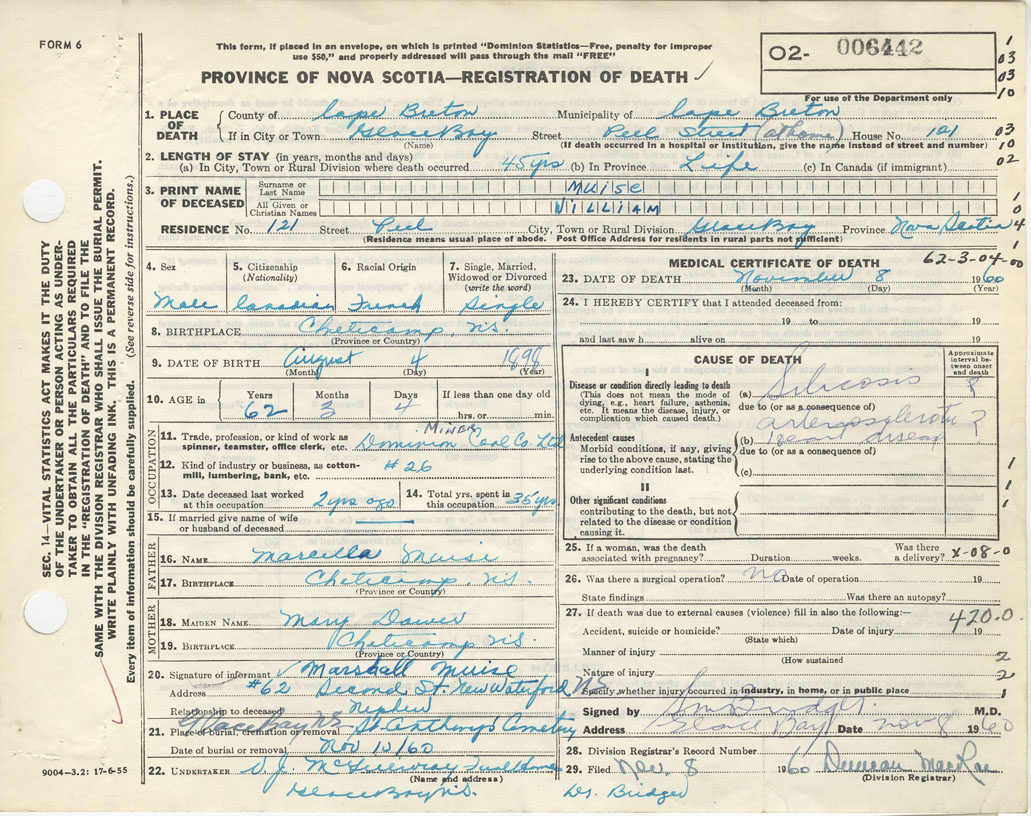 FORM 6
This form, if placed in an envelope, on which is printed "Dominion Statistics—Free, penalty for improper
use $50," and properly addressed will pass through the mail "FREE"
PROVINCE OF NOVA SCOTIA—REGISTRATION OF DEATH ✓
02- 006442
For use of the Department only
1
03
03
10
03
10
02
1
0
4
62-3-04-00
SEC. 14—VITAL STATISTICS ACT MAKES IT THE DUTY
OF THE UNDERTAKER OR PERSON ACTING AS UNDER-
TAKER TO OBTAIN ALL THE PARTICULARS REQUIRED
IN THE "REGISTRATION OF DEATH" AND TO FILE THE
SAME WITH THE DIVISION REGISTRAR WHO SHALL ISSUE THE BURIAL PERMIT.
WRITE PLAINLY WITH UNFADING INK. THIS IS A PERMANENT RECORD.
Every item of information should be carefully supplied. (See reverse side for instructions.)
1. PLACE OF DEATH
County of Cape Breton Municipality of Cape Breton
If in City or Town Glace Bay Street Peel Street (at home) House No. 121
(Name) (If death occurred in a hospital or institution, give the name instead of street and number)
2. LENGTH OF STAY (in years, months and days)
(a) In City, Town or Rural Division where death occurred 45 yrs (b) In Province Life (c) In Canada (if immigrant)
3. PRINT NAME OF DECEASED
Surname or Last Name MUISE
All Given or Christian Names WILLIAM
RESIDENCE No. 121 Street Peel City, Town or Rural Division Glace Bay Province Nova Scotia
(Residence means usual place of abode. Post Office Address for residents in rural parts not sufficient)
4. Sex Male
5. Citizenship (Nationality) Canadian
6. Racial Origin French
7. Single, Married, Widowed or Divorced (write the word) Single
8. BIRTHPLACE Cheticamp, N.S.
(Province or Country)
9. DATE OF BIRTH August 4 1898
(Month) (Day) (Year)
10. AGE in Years 62 Months 3 Days 4 If less than one day old
hrs. or min.
OCCUPATION
MINER
11. Trade, profession, or kind of work as spinner, teamster, office clerk, etc. Dominion Coal Co. Ltd
12. Kind of industry or business, as cotton-mill, lumbering, bank, etc. #26
13. Date deceased last worked at this occupation 2 yrs ago
14. Total yrs. spent in this occupation 35 yrs
15. If married give name of wife or husband of deceased
FATHER
16. NAME Marcella Muise
17. BIRTHPLACE Cheticamp, N.S.
(Province or Country)
MOTHER
18. MAIDEN NAME Mary
19. BIRTHPLACE Cheticamp N.S.
(Province or Country)
20. Signature of informant ✓ Marshall Muise
Address #62 Second St. New Waterford N.S.
Relationship to deceased Nephew
Glace Bay N.S.
21. Place of burial, cremation or removal St Anthony's Cemetery
Date of burial or removal Nov 10/60
22. UNDERTAKER Funeral Home
(Name and address)
Glace Bay N.S.
9004-3.2: 17-6-55
MEDICAL CERTIFICATE OF DEATH
23. DATE OF DEATH November 8 1960
(Month) (Day) (Year)
24. I HEREBY CERTIFY that I attended deceased from:
19 to 19
and last saw h alive on 19
CAUSE OF DEATH
Approximate interval between onset and death
I
Disease or condition directly leading to death
(This does not mean the mode of dying, e.g., heart failure, asthenia, etc. It means the disease, injury, or complication which caused death.)
(a) Silicosis ?
due to (or as a consequence of)
Antecedent causes
Morbid conditions, if any, giving rise to the above cause, stating the underlying condition last.
(b) arteriosclerotic heart disease ?
due to (or as a consequence of)
(c)
II
Other significant conditions contributing to the death, but not related to the disease or condition causing it.
1
1
1
25. If a woman, was the death associated with pregnancy? Duration weeks. Was there a delivery?
X-08-0
26. Was there a surgical operation? no Date of operation 19
State findings Was there an autopsy?
27. If death was due to external causes (violence) fill in also the following:—
420.0
Accident, suicide or homicide? Date of injury 19
(State which)
Manner of injury 2
(How sustained
Nature of injury 2
Specify whether injury occurred in industry, in home, or in public place 1
Signed by Bridger M.D.
Address Glace Bay Date Nov 8 1960
28. Division Registrar's Record Number
29. Filed Nov. 8 1960 Duncan MacRae
(Division Registrar)
Dr. Bridger